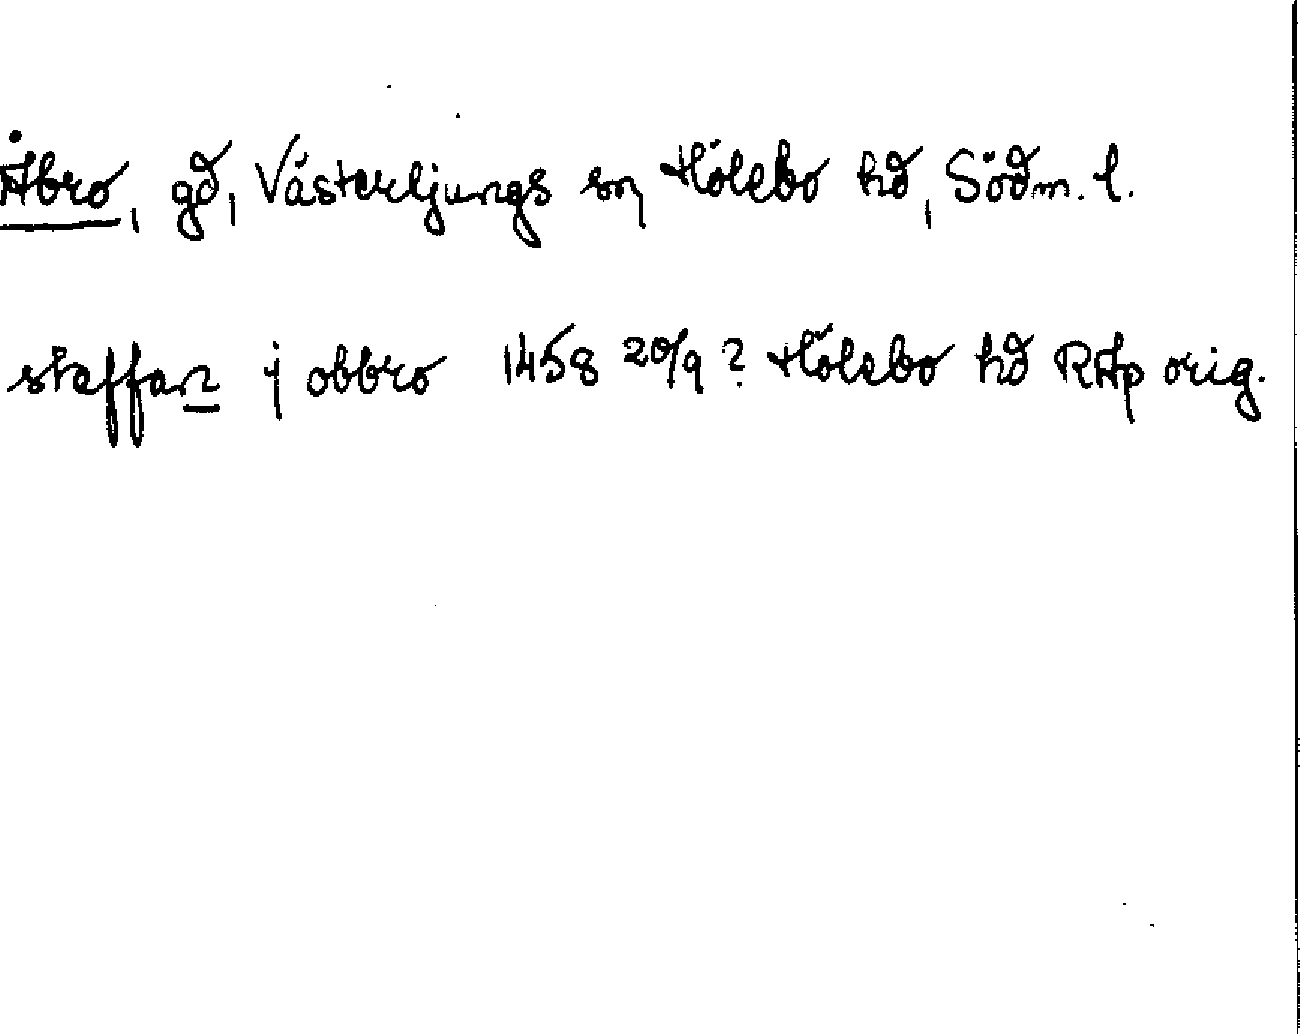 Åbro, gd, Västerljungs sn, Hölebo hd, Södm. l.
staffan j obbro 1458 20/9? Hölebo hd RAp orig.